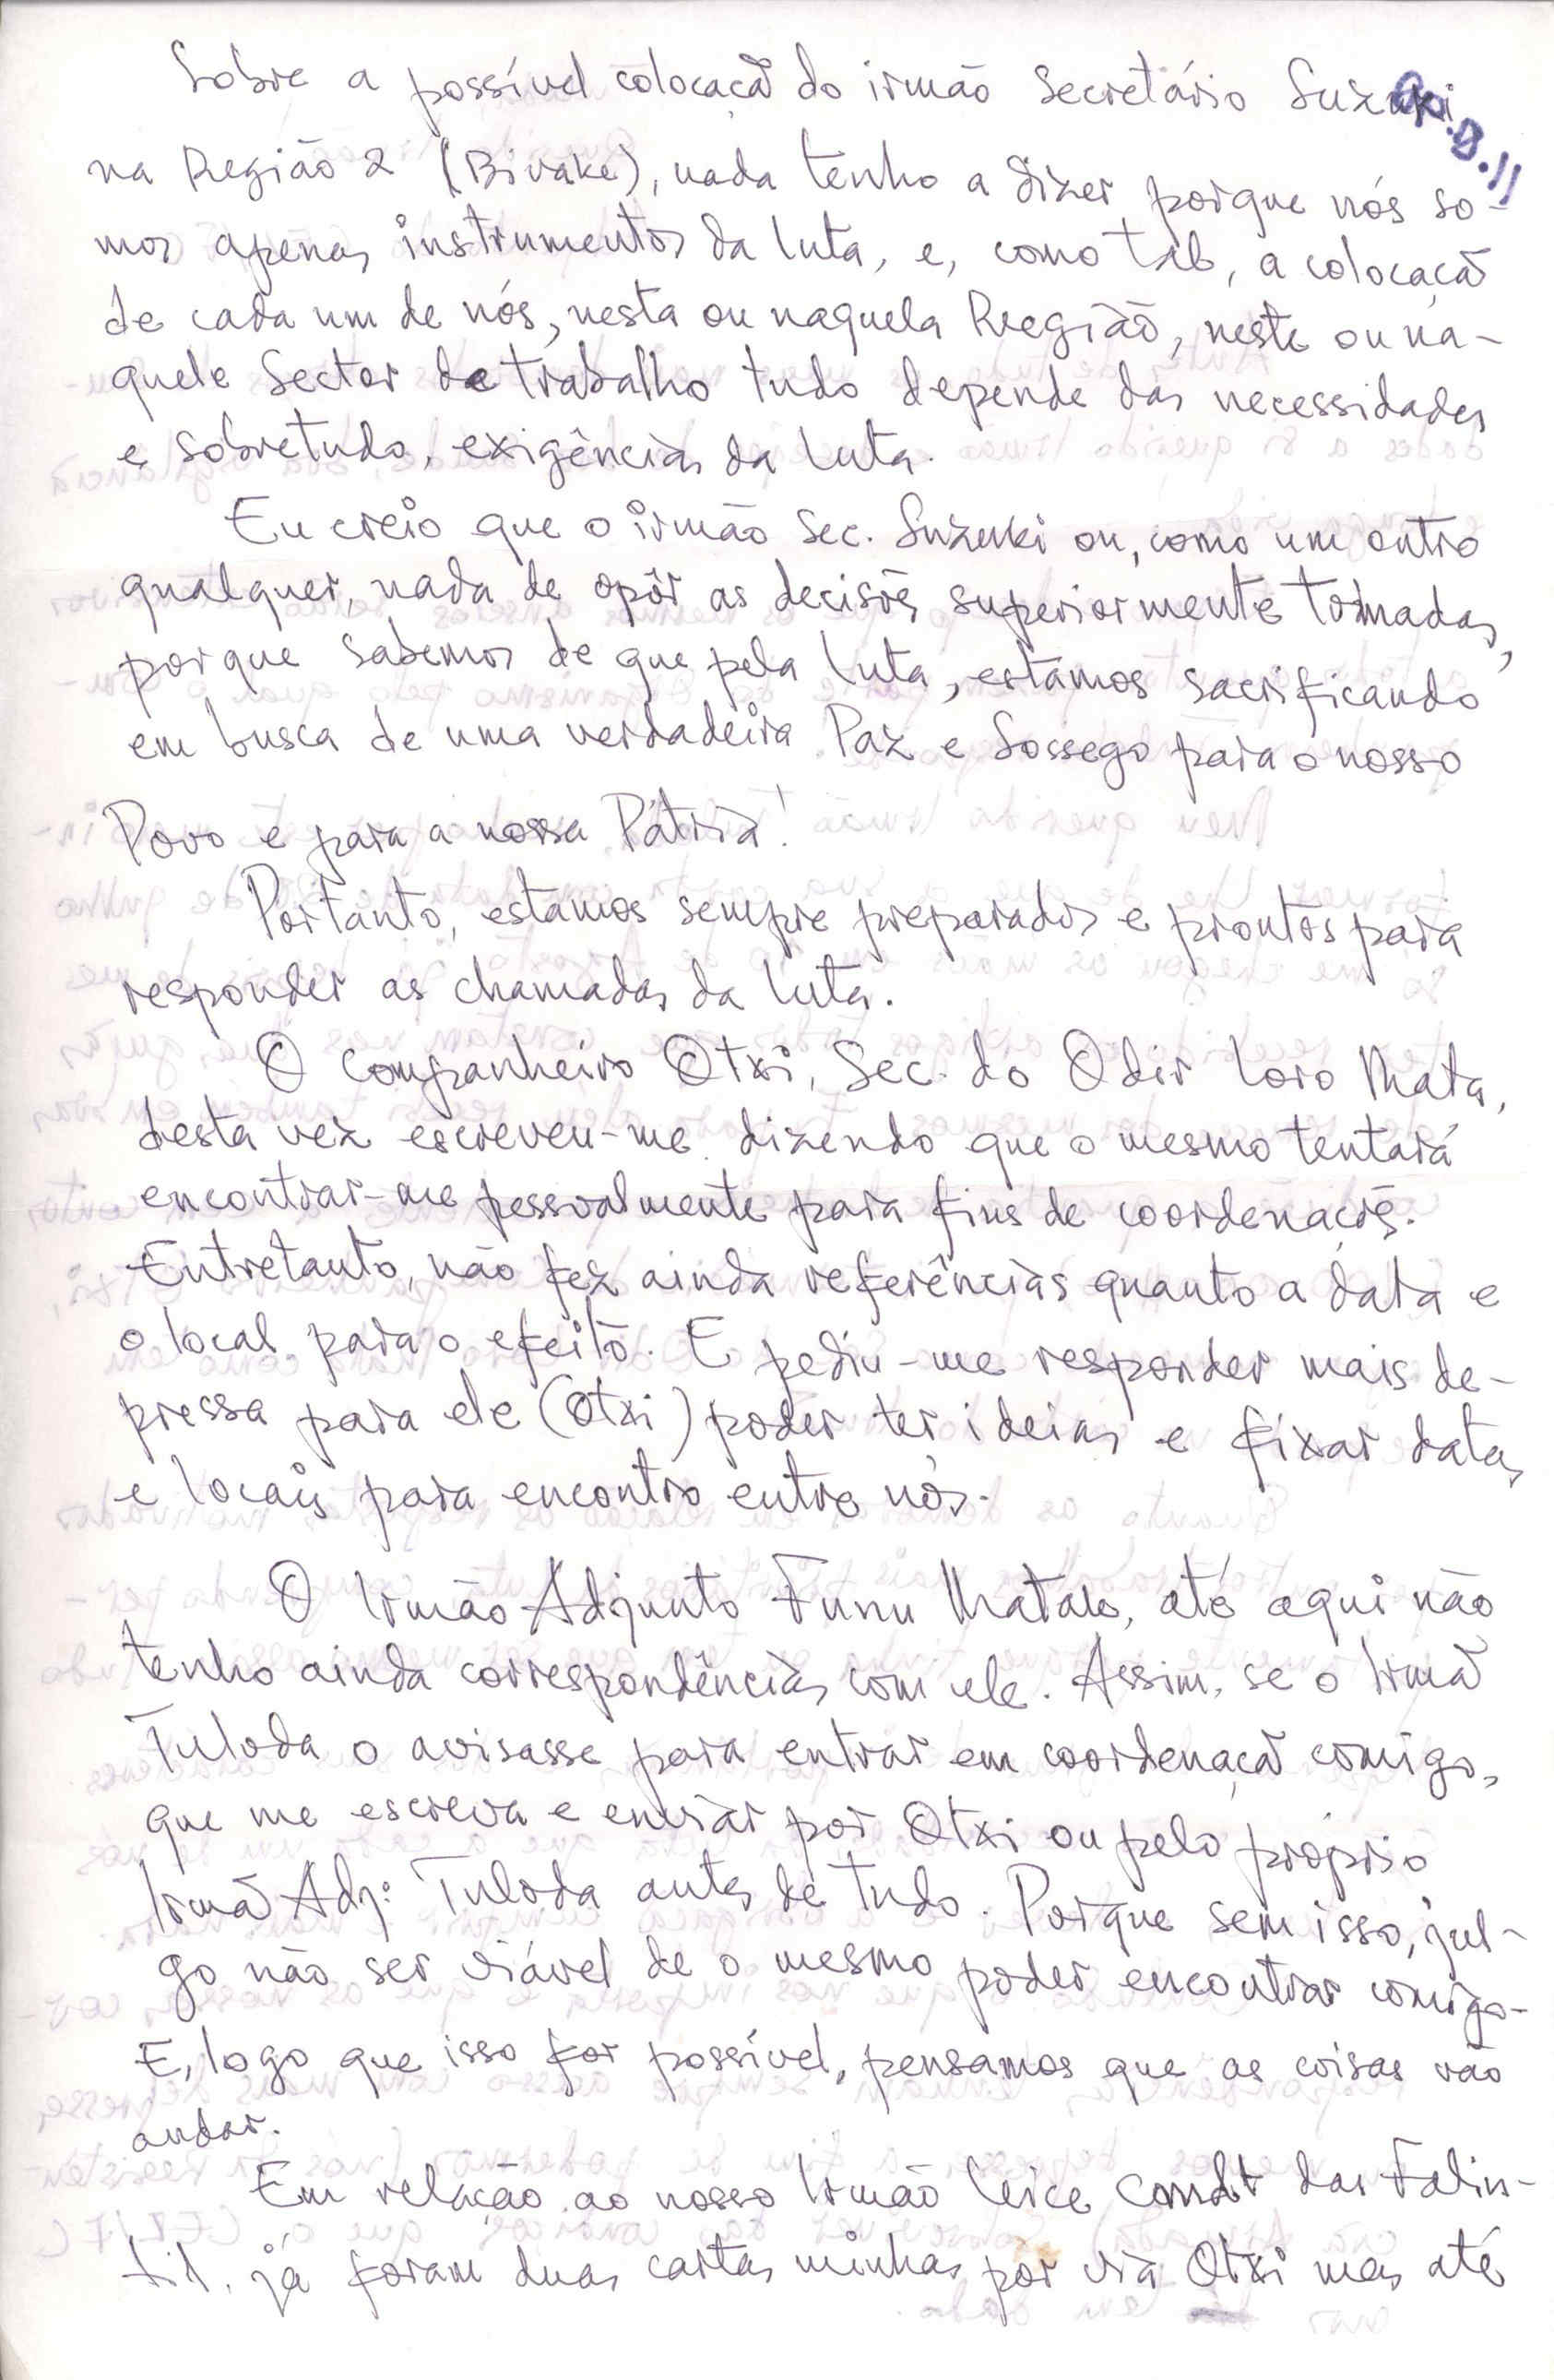 Sobre a possível colocaçã do irmão Secretário Suzuki
na Região 2 (Bivake), nada tenho a dizer porque nós so-
mos apenas instrumentos da luta, e, como tal, a colocaçã
de cada um de nós, nesta ou naquela Região, neste ou na-
quele Sector de trabalho tudo depende das necessidades
e sobretudo, exigências da luta.
Eu creio que o irmão Sec. Suzuki ou, como um outro
qualquer, nada de opôr as decisõs superiormente tomadas,
porque sabemos de que pela luta, estamos sacrificando
em busca de uma verdadeira Paz e Sossego para o nosso
Povo e para a nossa Pátria!
Portanto, estamos sempre preparados e prontos para
responder as chamadas da luta.
O companheiro Otxi, Sec. do Odir Loro Mata,
desta vez escreveu-me dizendo que o mesmo tentará
encontrar-me pessoalmente para fins de coordenaçõs.
Entretanto, não fez ainda referências quanto a data e
o local para o efeito. E pediu-me responder mais de-
pressa para ele (Otxi) poder ter ideias e fixar datas
e locais para encontro entre nós.
O Irmão Adjunto Funu Matak, até aqui não
tenho ainda correspondências com ele. Assim, se o Irmã
Tuloda o avisasse para entrar em coordenaçã comigo,
que me escreva e enviar por Otxi ou pelo próprio
Irmã Adj: Tuloda antes de tudo. Porque sem isso, jul-
go não ser viável de o mesmo poder encontrar comigo.
E, logo que isso for possível, pensamos que as coisas vão
andar.
Em relação ao nosso Irmão Vice Comdt das Falin-
til, já foram duas cartas minhas por via Otxi mas até